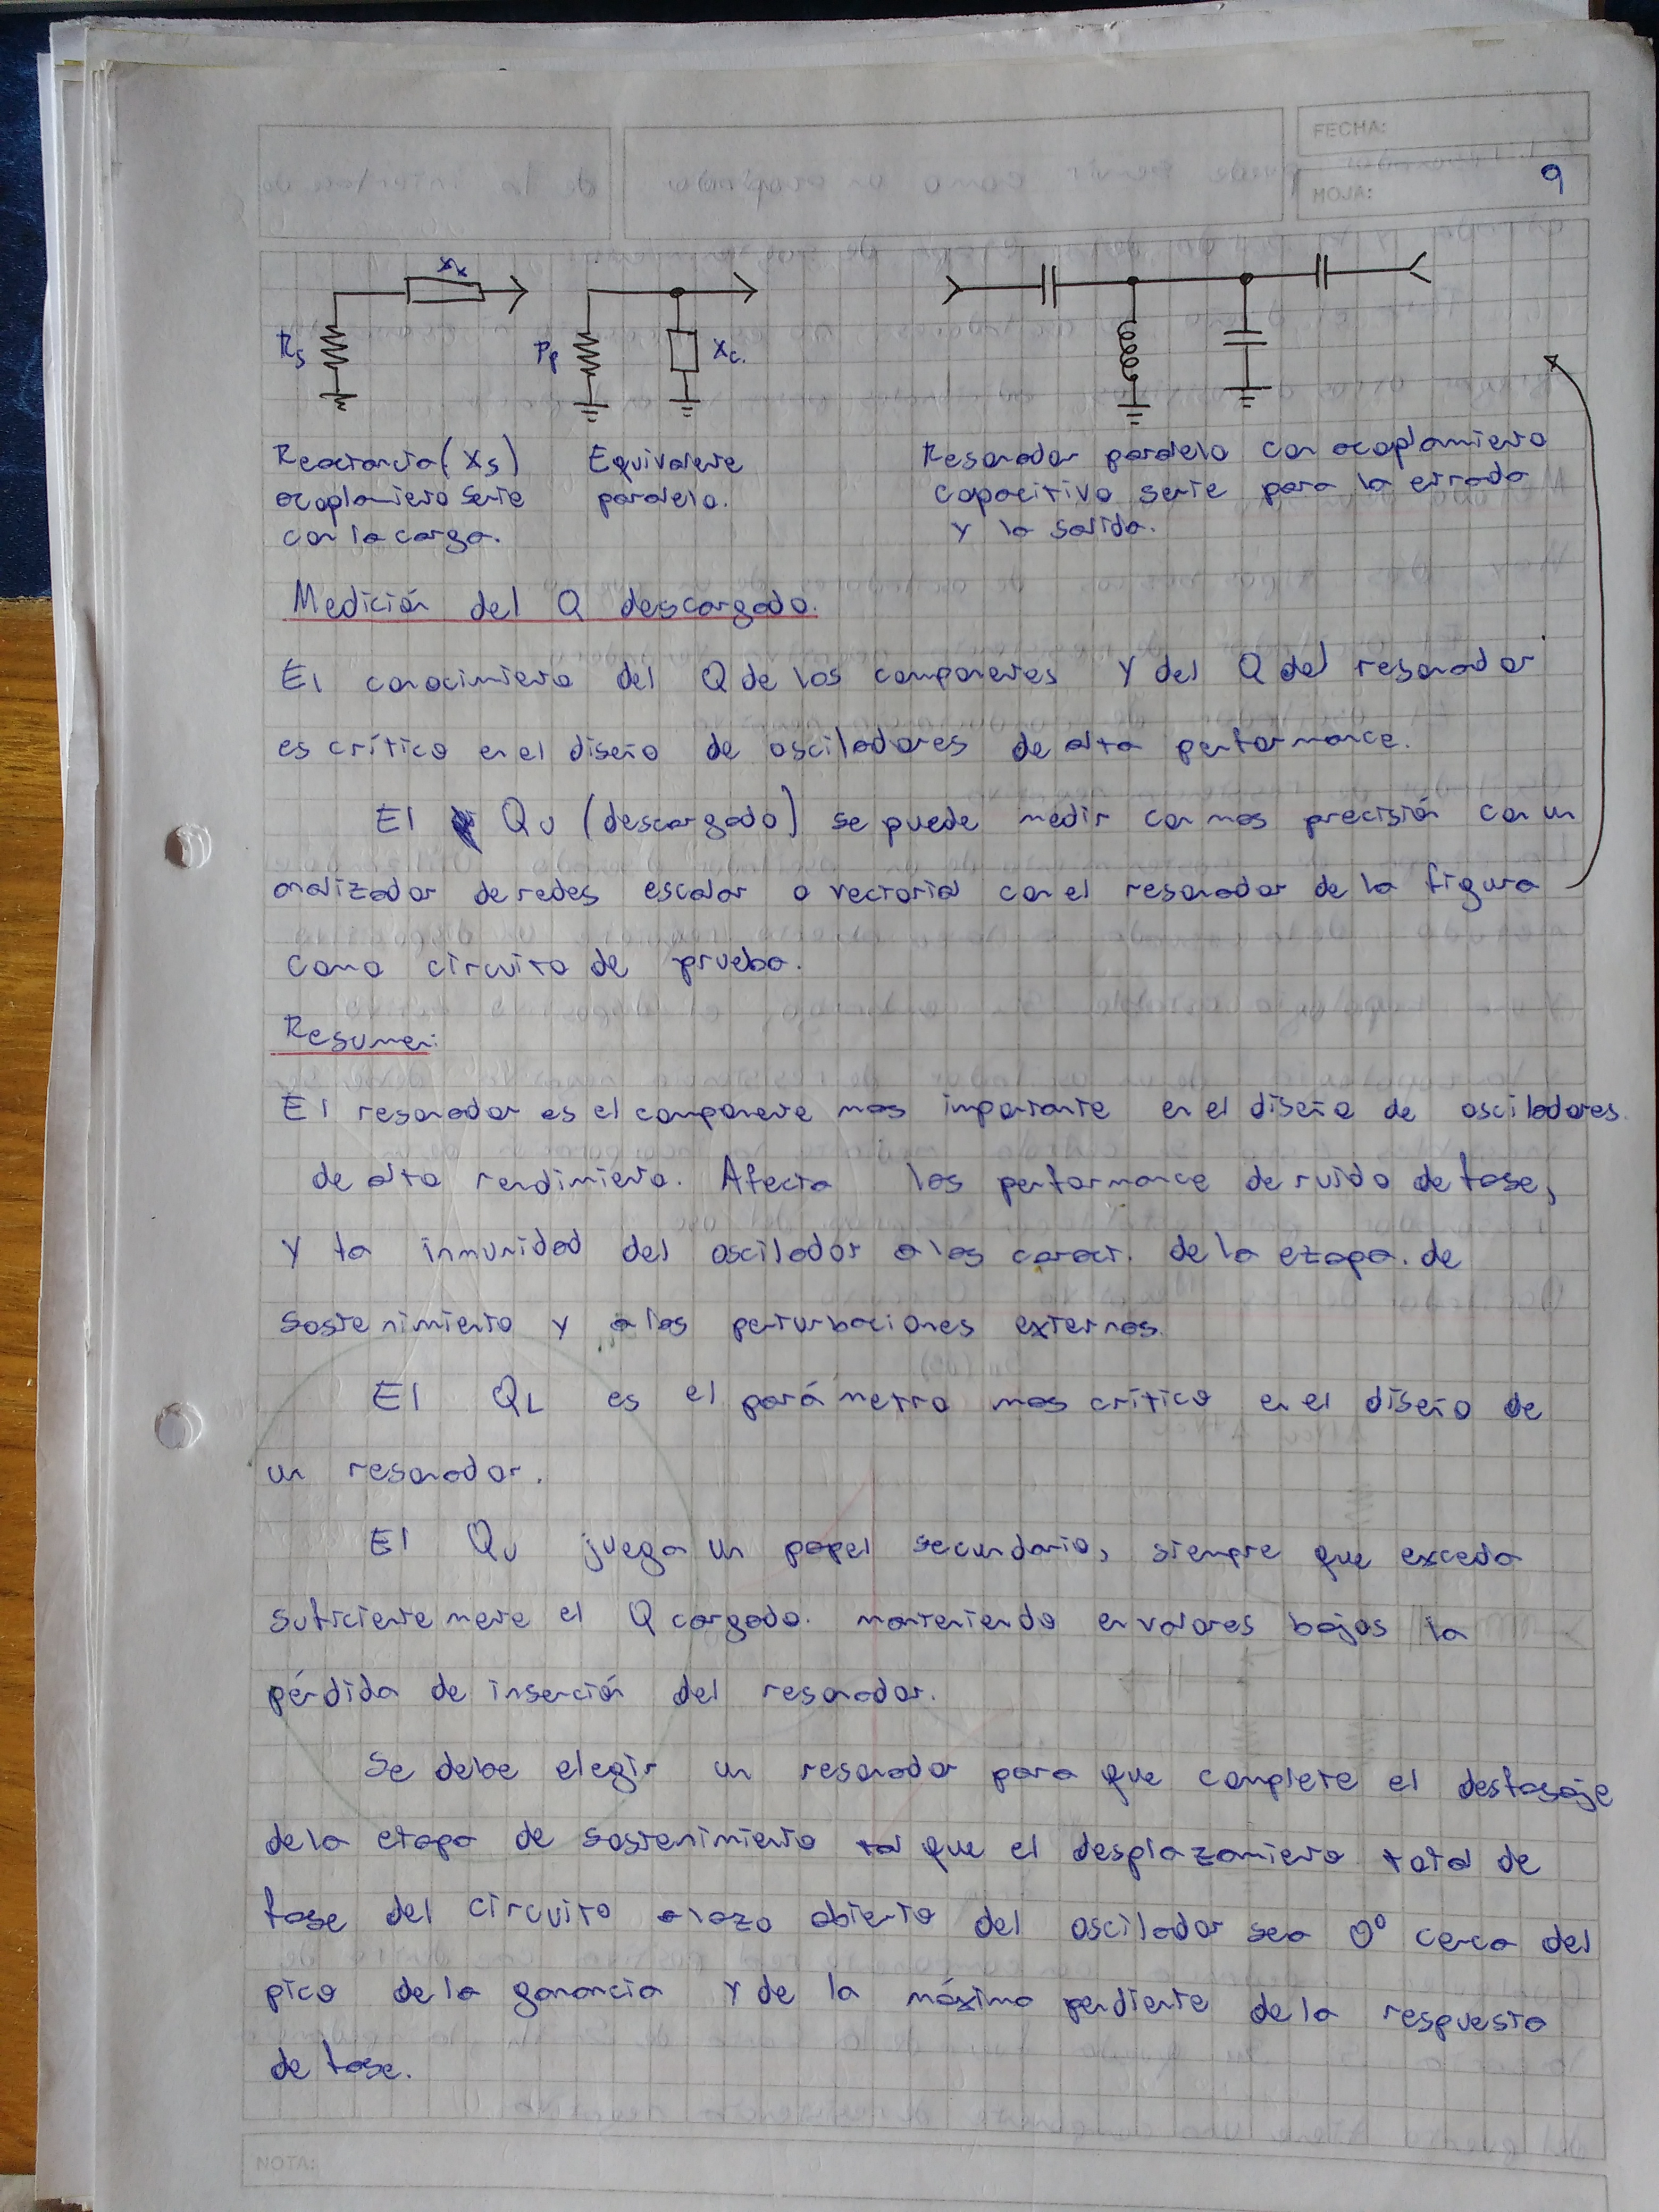 FECHA:
HOJA:
9
Rs
Xx
Rp
Xc.
Reactancia (Xs)
acoplamiento serie
con la carga.
Equivalente
paralelo.
Resonador paralelo con acoplamiento
capacitivo serie para la entrada
y la salida.
Medición del Q descargado.
El conocimiento del Q de los componentes y del Q del resonador
es crítico en el diseño de osciladores de alta performance.
El Qu (descargado) se puede medir con mas precisión con un
analizador de redes escalar o vectorial con el resonador de la figura
como circuito de prueba.
Resumen:
El resonador es el componente mas importante en el diseño de osciladores
de alto rendimiento. Afecta las performance de ruido de fase,
y la inmunidad del oscilador a las caract. de la etapa. de
sostenimiento y a las perturbaciones externas.
El QL es el parámetro mas crítico en el diseño de
un resonador.
El Qu juega un papel secundario, siempre que exceda
suficientemente el Q cargado. manteniendo en valores bajos la
pérdida de inserción del resonador.
Se debe elegir un resonador para que complete el desfasaje
de la etapa de sostenimiento tal que el desplazamiento total de
fase del circuito a lazo abierto del oscilador sea 0° cerca del
pico de la ganancia y de la máxima pendiente de la respuesta
de fase.
NOTA: